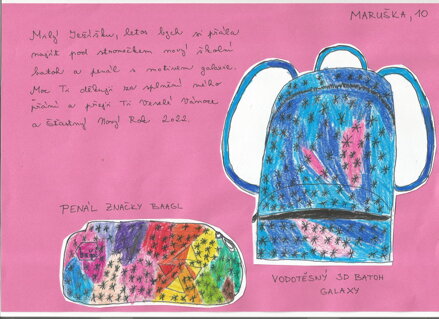 MARUŠKA, 10
Milý Ježíšku, letos bych si přála
najít pod stromečkem nový školní
batoh a penál s motivem galaxie.
Moc Ti děkuji za splnění mého
přání a přeji Ti Veselé Vánoce
a Šťastný Nový Rok 2022.
PENÁL ZNAČKY BAAGL
VODOTĚSNÝ 3D BATOH
GALAXY